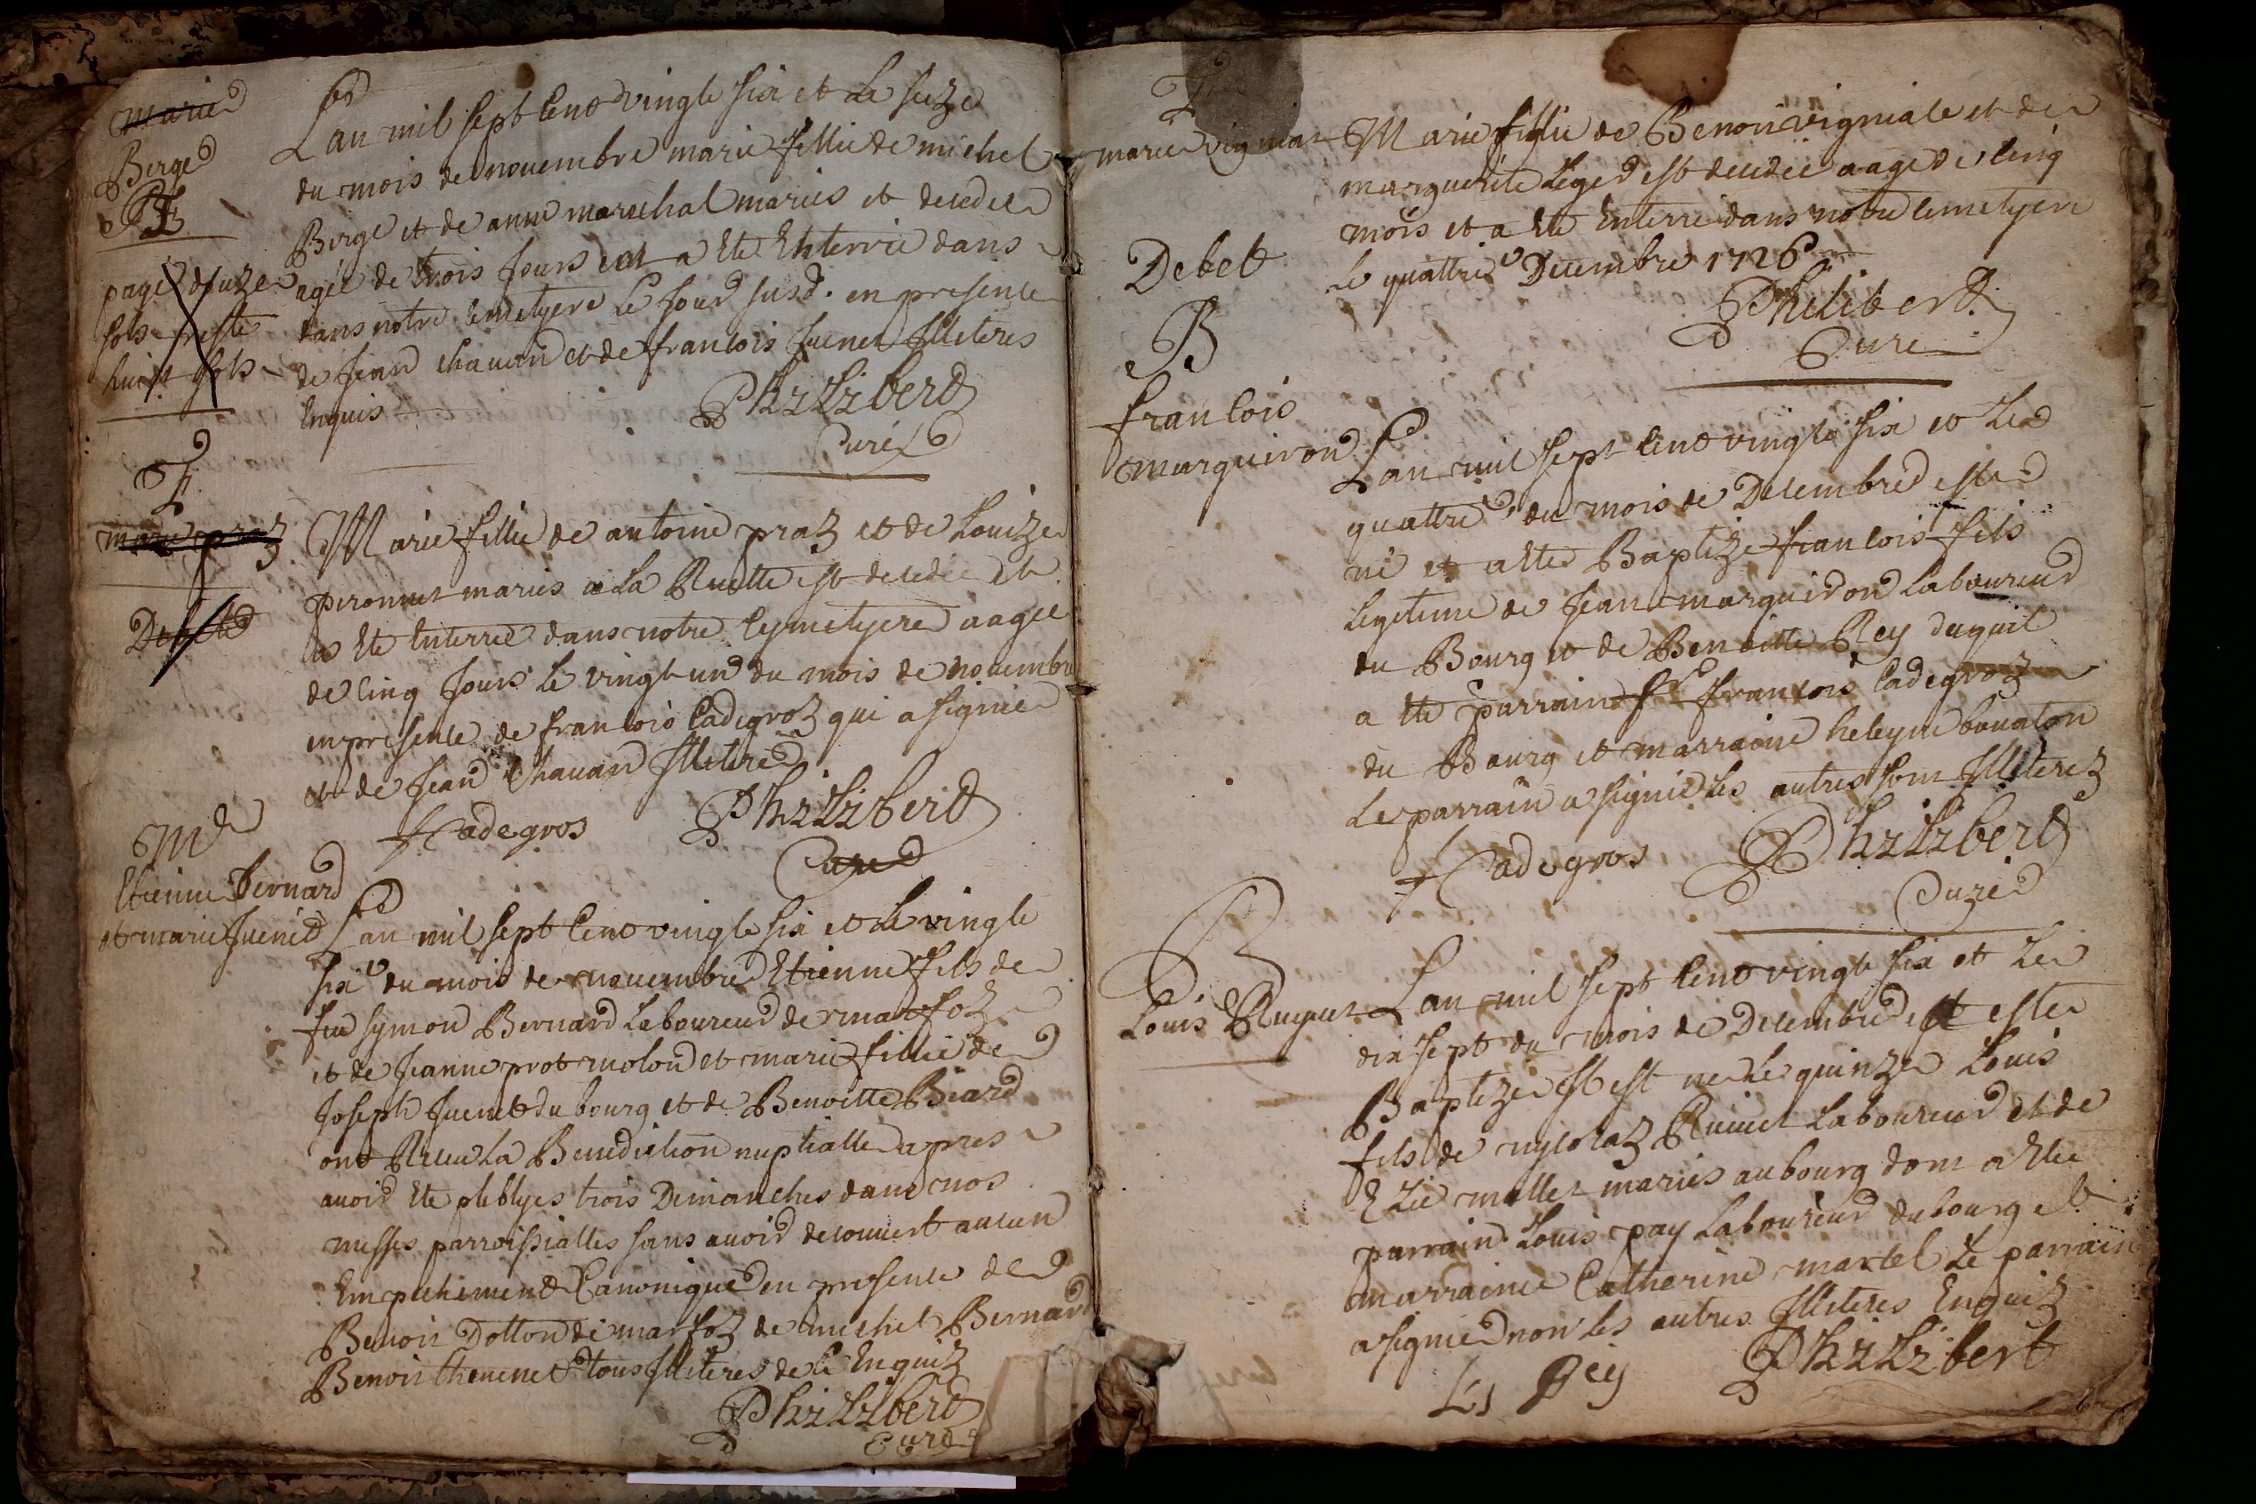 marie
Berge
L'an mil sept cent vingt six et le seize
du mois de novembre marie fillie de michel
Berge et de anne marechal mariés et decedee
agée de trois jours et a ete enterrée dans
dans notre cemetyere le jour susd. en presence
de jean chavan et de francois juenet illiteres
enquis
Philibert
Curé
payé douze
sols reste
huict sols
F
marie praz
Debet
Marie fillie de antoine praz et de Louize
peronnet mariés a la Ruette est decedée et
a ete enterree dans notre cymetyere aagee
de cinq jours le vingt un du mois de novembre
en presence de francois Cadegroz qui a signié
et de jean Chavan illitere
f Cadegros Philibert
Curé
M
Etienne Bernard
et marie juenet
L'an mil sept cent vingt six et le vingt
six du mois de novembre Etienne fils de
feu symon Bernard laboureur de marfoz
et de jeanne prot ruolon et marie fillie de
joseph juenet du bourg et de Benoitte Biard
ont Receu la Benediction nuptialle apres
avoir ete publyes trois Dimanches dans nos
messes parroissialles sans avoir decouvert aucun
Empechement Canonique en presence de
Benoit Dotton de marfoz de michel Bernard
Benoit thevenet tous illiteres de ce Enquiz
Philibert
curé
marie vigniat
Debet
Marie fillie de Benoit vigniale et de
marguerite Lege est decedée aage de cinq
mois et a ete enterrée dans notre cemetyere
le quattrie Decembre 1726
Philibert
Cure
B
francois
marguiron
L'an mil sept cent vingt six et le
quattrie du mois de Decembre est
né et a ete Baptizé francois fils
legetime de jean marguiron laboureur
du Bourg et de Benoitte Rey duquel
a ete parrain francois Cadegroz
du Bourg et marraine heleyne bouaton
le parrain a signié les autres sont illiterez
f Cadegros Philibert
Curé
B
Louis Ruynet
L'an mil sept cent vingt six et le
dix sept du mois de Decembre est este
Baptizé et est né le quinze Louis
fils de nycolaz Ruinet laboureur et de
Ezie mallet mariés au bourg dont a etee
parrain Louis pay laboureur du bourg et
marraine Catherine martel le parrain
a signié non les autres illiteres Enquiz
Ls Pey Philibert